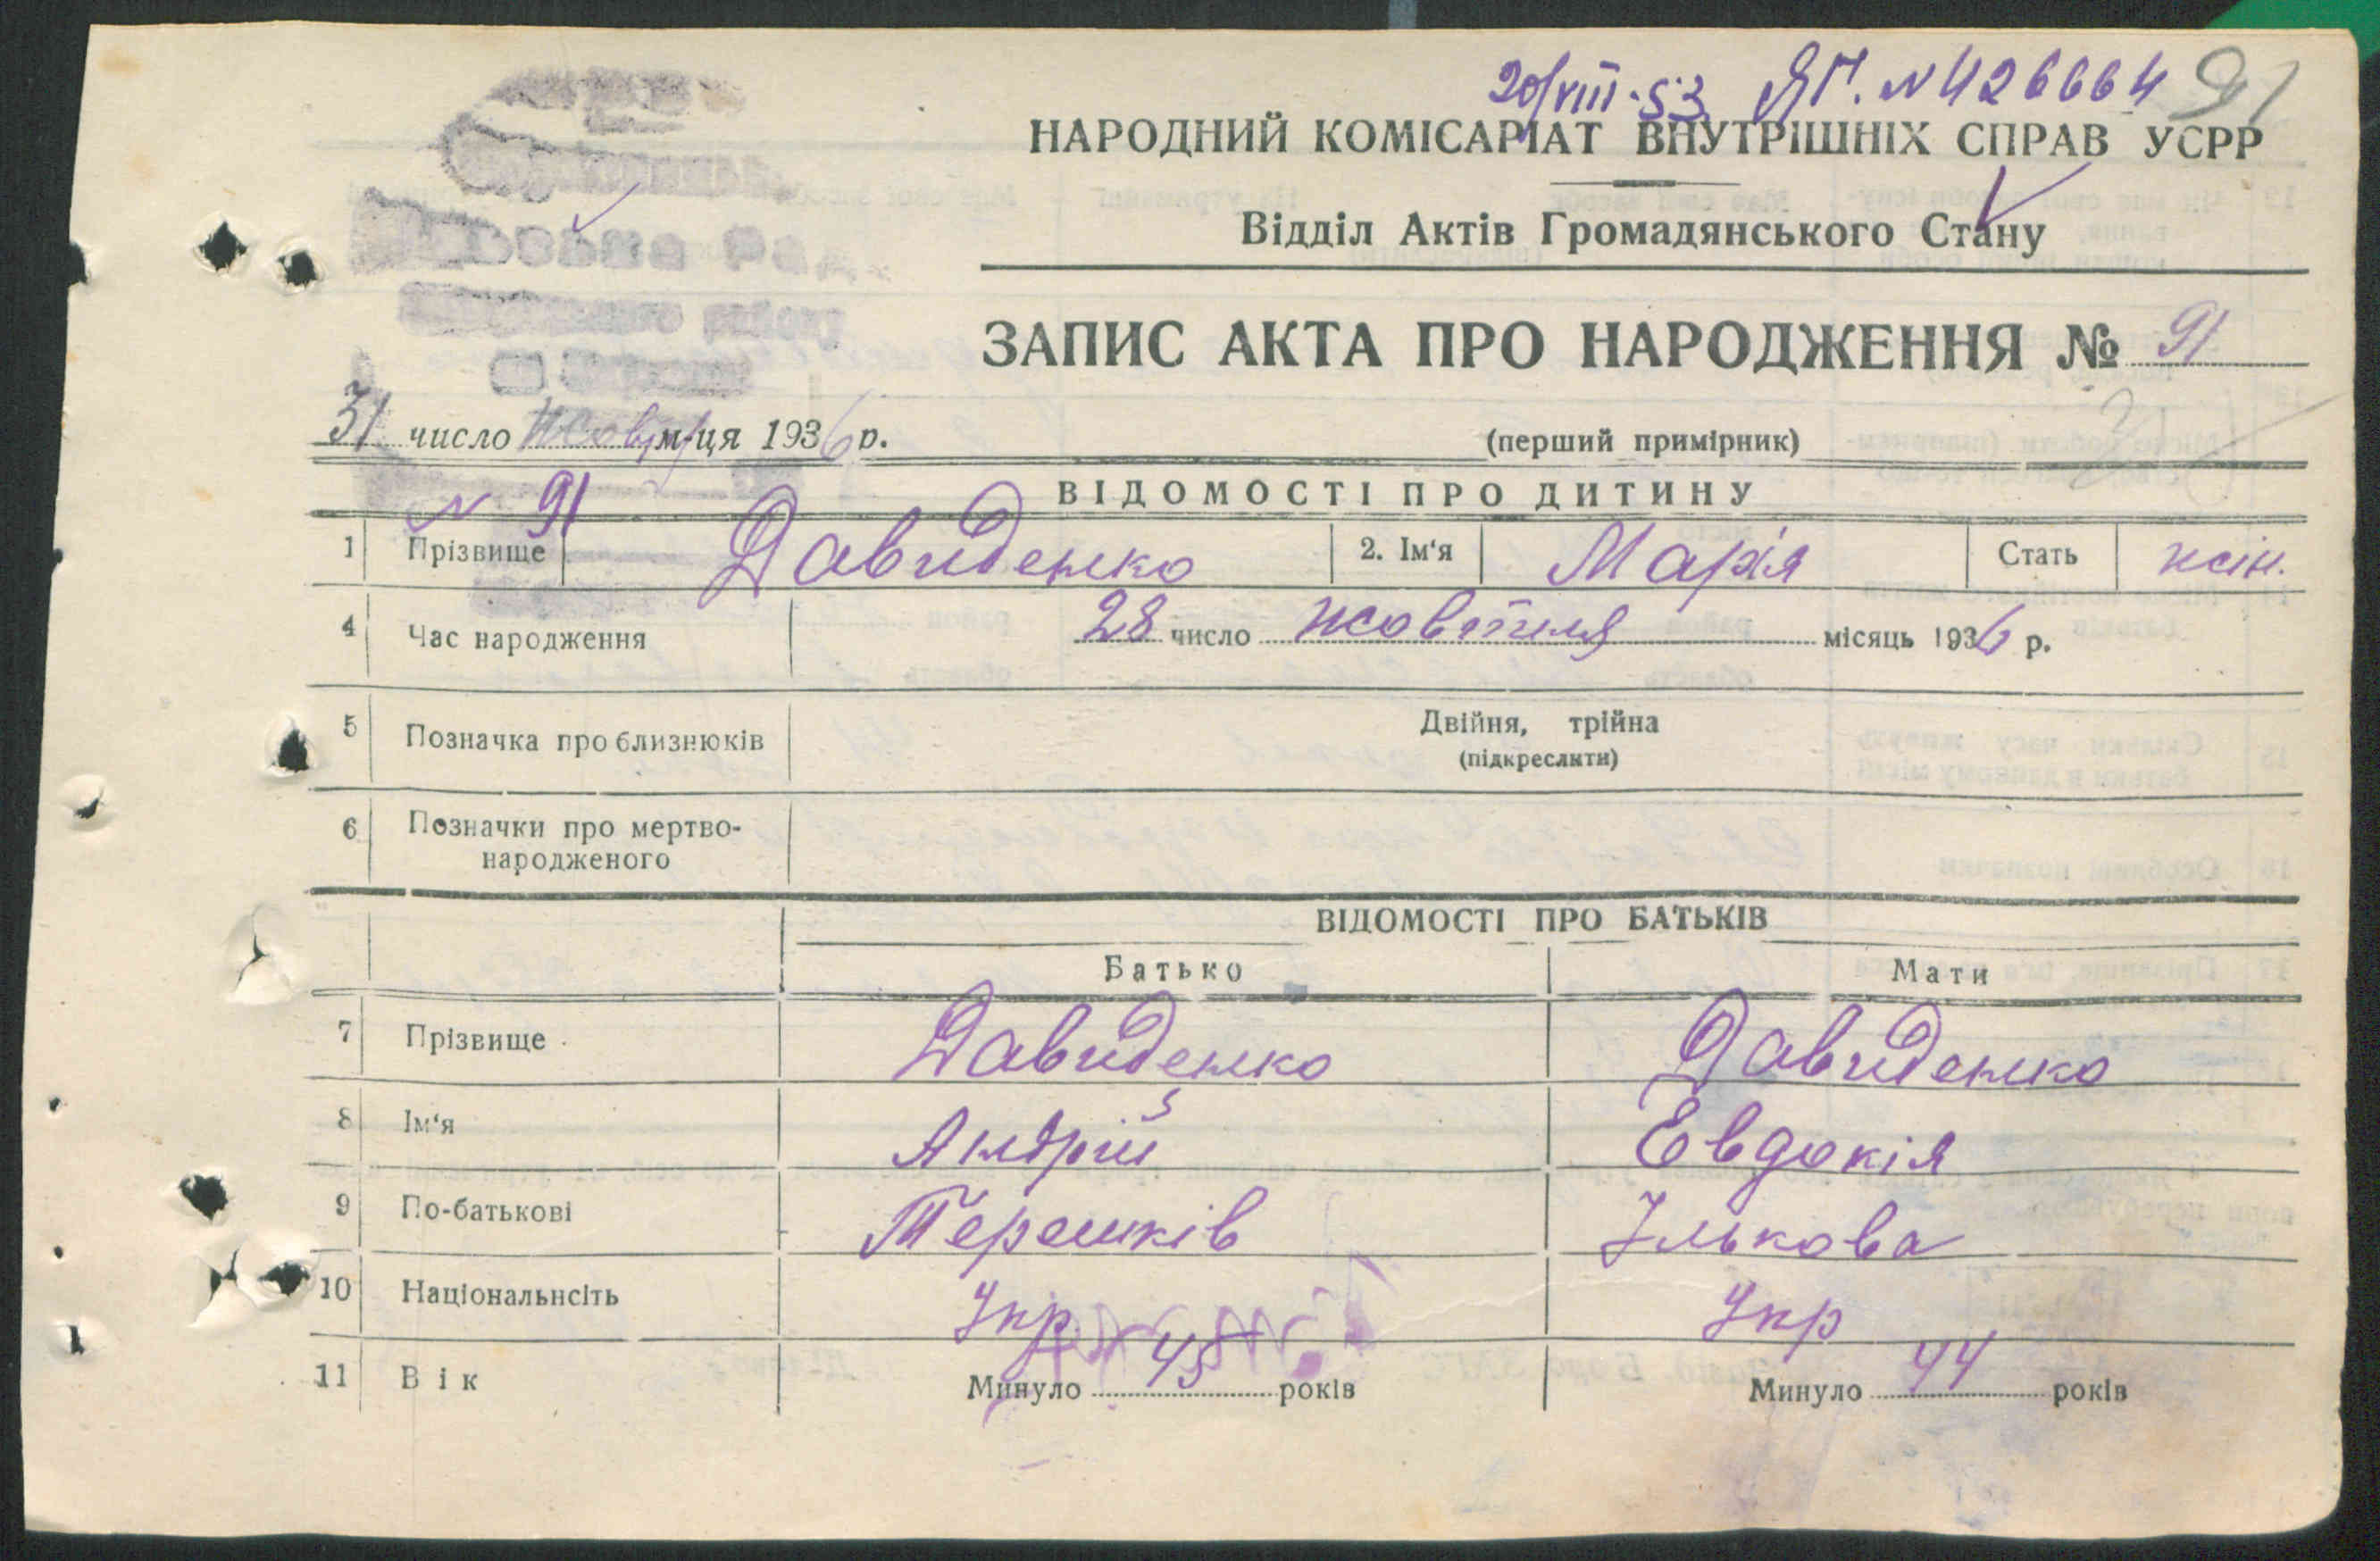 20/VIII-53 ЯГ. № 426664 91
НАРОДНИЙ КОМІСАРІАТ ВНУТРІШНІХ СПРАВ УСРР
Відділ Актів Громадянського Стану
ЗАПИС АКТА ПРО НАРОДЖЕННЯ № 91
31 число Жовт м-ця 1936 р.
(перший примірник)
N 91
ВІДОМОСТІ ПРО ДИТИНУ
1 Прізвище Давиденко 2. Ім'я Марія Стать жін.
4 Час народження 28 число жовтня місяць 1936 р.
5 Позначка про близнюків Двійня, трійна
(підкреслити)
6 Позначки про мертво-
народженого
ВІДОМОСТІ ПРО БАТЬКІВ
Батько Мати
7 Прізвище Давиденко Давиденко
8 Ім'я Андрій Евдокія
9 По-батькові Терешків Ількова
10 Національнсіть Укр Укр
11 Вік Минуло 45 років Минуло 44 років